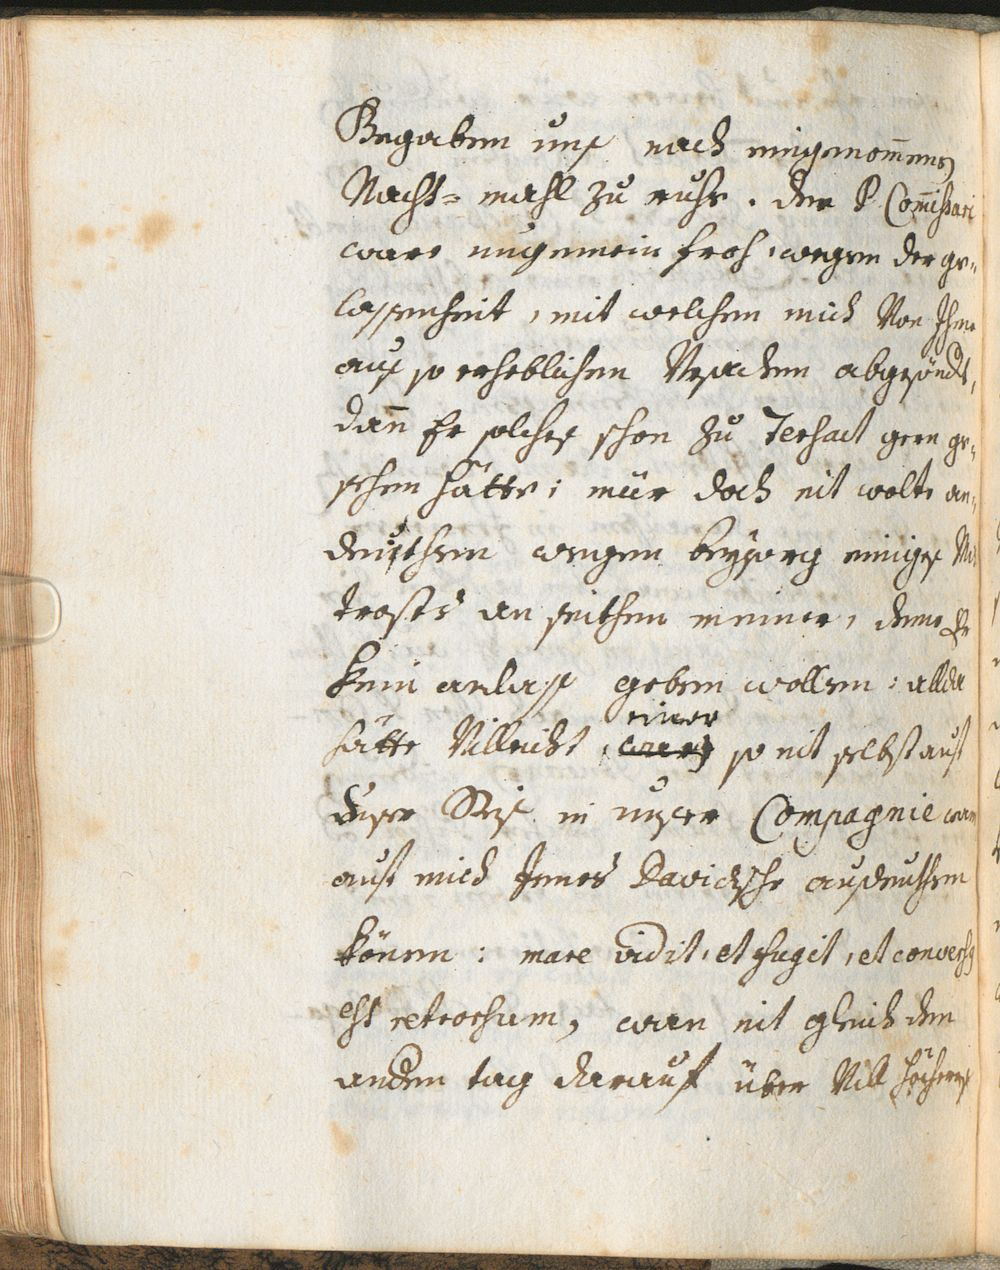 Begaben unß nach eingenom̅enen
Nacht= mahl zu ruhe. der P Com̅issari
ware ungemein froh, wegen der ge=
lassenheit, mit welchen mich Von Ihme
auß so erheblichen Vrsachen abgesöndt,
dan̅ Er solches schon zu Terhact gern ge=
sehen hätte; mür doch nit wolte an=
deuthen wegen beysorg einiges
trosts an seithen meiner, deme Er
kein anlaß geben wollen: allda
hätte Villeicht, einer so nit selbst auf
dieser Reis in unser Compagnie war
auf mich Jenes Davidische ausdeuthen
könen: mare vidit, et fugit, et conversg
est retrorsum, wan nit gleich den
anden tag darauf über Vill höheres